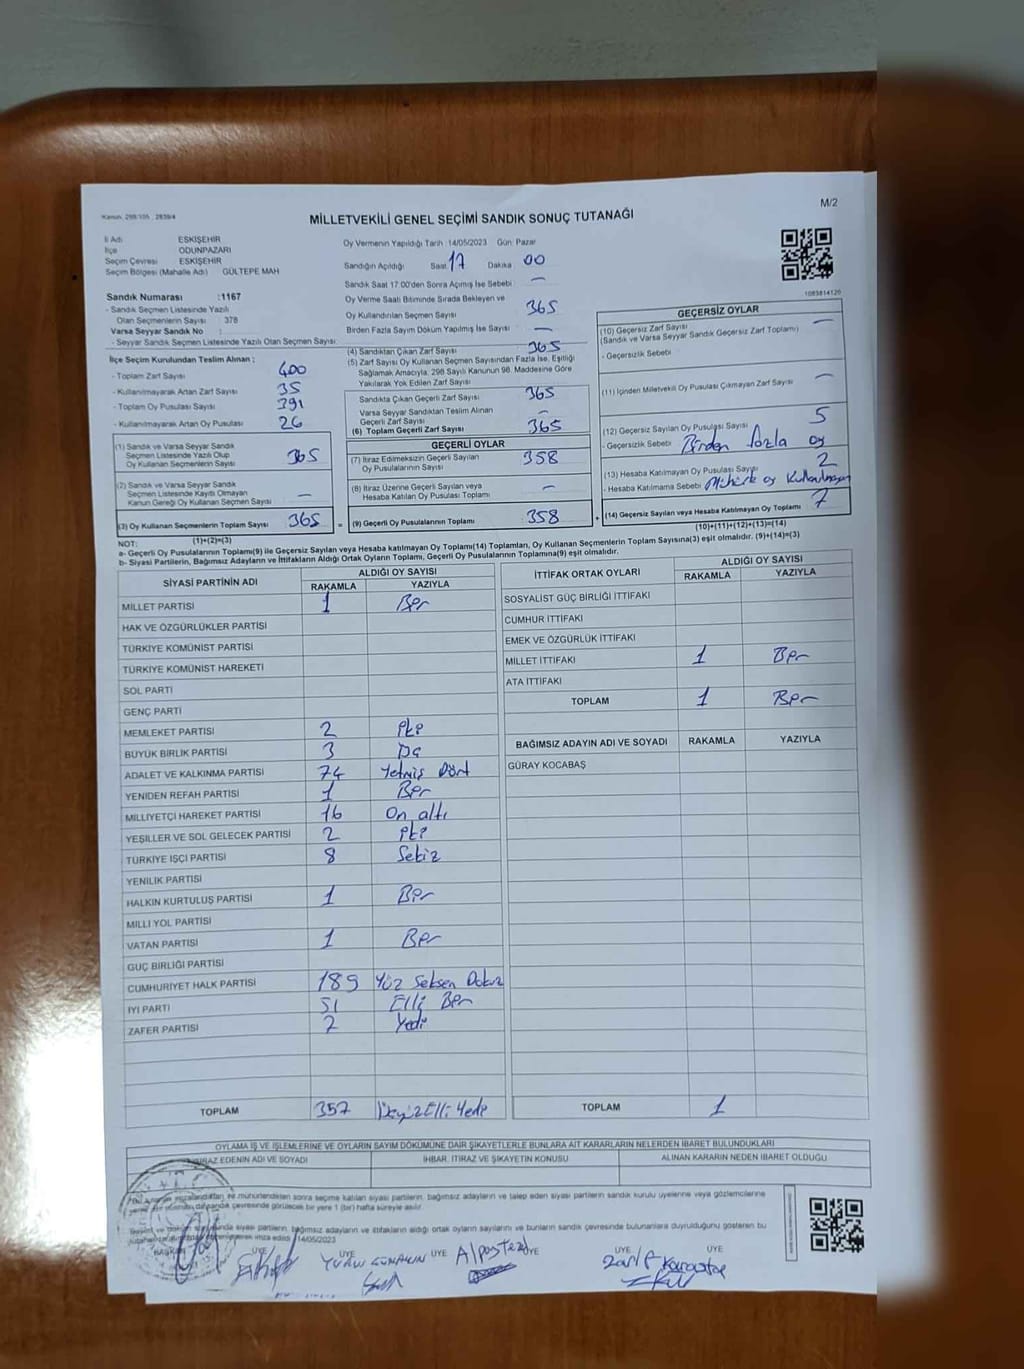 Kanun, 298/105 2839/4
MİLLETVEKİLİ GENEL SEÇİMİ SANDIK SONUÇ TUTANAĞI
M/2
İl Adı ESKİŞEHİR
İlçe ODUNPAZARI
Seçim Çevresi ESKİŞEHİR
Seçim Bölgesi (Mahalle Adı) GÜLTEPE MAH
Sandık Numarası :1167
- Sandık Seçmen Listesinde Yazılı
Olan Seçmenlerin Sayısı : 378
Varsa Seyyar Sandık No :
- Seyyar Sandık Seçmen Listesinde Yazılı Olan Seçmen Sayısı
İlçe Seçim Kurulundan Teslim Alınan ;
- Toplam Zarf Sayısı 400
- Kullanılmayarak Artan Zarf Sayısı 35
- Toplam Oy Pusulası Sayısı 391
- Kullanılmayarak Artan Oy Pusulası 26
(1) Sandık ve Varsa Seyyar Sandık
Seçmen Listesinde Yazılı Olup
Oy Kullanan Seçmenlerin Sayısı 365
(2) Sandık ve Varsa Seyyar Sandık
Seçmen Listesinde Kayıtlı Olmayan
Kanun Gereği Oy Kullanan Seçmen Sayısı —
(3) Oy Kullanan Seçmenlerin Toplam Sayısı 365 =
(1)+(2)=(3)
Oy Vermenin Yapıldığı Tarih :14/05/2023 Gün: Pazar
Sandığın Açıldığı Saat 17 Dakika 00
Sandık Saat 17:00'den Sonra Açılmış İse Sebebi —
Oy Verme Saati Bitiminde Sırada Bekleyen ve
Oy Kullandırılan Seçmen Sayısı 365
Birden Fazla Sayım Döküm Yapılmış İse Sayısı —
(4) Sandıktan Çıkan Zarf Sayısı 365
(5) Zarf Sayısı Oy Kullanan Seçmen Sayısından Fazla İse, Eşitliği
Sağlamak Amacıyla, 298 Sayılı Kanunun 98. Maddesine Göre
Yakılarak Yok Edilen Zarf Sayısı
Sandıkta Çıkan Geçerli Zarf Sayısı 365
Varsa Seyyar Sandıktan Teslim Alınan
Geçerli Zarf Sayısı —
(6) Toplam Geçerli Zarf Sayısı 365
GEÇERLİ OYLAR
(7) İtiraz Edilmeksizin Geçerli Sayılan
Oy Pusulalarının Sayısı 358
(8) İtiraz Üzerine Geçerli Sayılan veya
Hesaba Katılan Oy Pusulası Toplamı —
(9) Geçerli Oy Pusulalarının Toplamı 358 +
1083814120
GEÇERSİZ OYLAR
(10) Geçersiz Zarf Sayısı —
(Sandık ve Varsa Seyyar Sandık Geçersiz Zarf Toplamı)
- Geçersizlik Sebebi
(11) İçinden Milletvekili Oy Pusulası Çıkmayan Zarf Sayısı —
(12) Geçersiz Sayılan Oy Pusulası Sayısı 5
- Geçersizlik Sebebi Birden fazla oy
(13) Hesaba Katılmayan Oy Pusulası Sayısı 2
- Hesaba Katılmama Sebebi
(14) Geçersiz Sayılan veya Hesaba Katılmayan Oy Toplamı 7
(10)+(11)+(12)+(13)=(14)
NOT:
a- Geçerli Oy Pusulalarının Toplamı(9) ile Geçersiz Sayılan veya Hesaba katılmayan Oy Toplamı(14) Toplamları, Oy Kullanan Seçmenlerin Toplam Sayısına(3) eşit olmalıdır. (9)+(14)=(3)
b- Siyasi Partilerin, Bağımsız Adayların ve İttifakların Aldığı Ortak Oyların Toplamı, Geçerli Oy Pusulalarının Toplamına(9) eşit olmalıdır.
SİYASİ PARTİNİN ADI ALDIĞI OY SAYISI
RAKAMLA YAZIYLA
MİLLET PARTİSİ 1 Bir
HAK VE ÖZGÜRLÜKLER PARTİSİ
TÜRKİYE KOMÜNİST PARTİSİ
TÜRKİYE KOMÜNİST HAREKETİ
SOL PARTİ
GENÇ PARTİ
MEMLEKET PARTİSİ 2 İki
BÜYÜK BİRLİK PARTİSİ 3 Üç
ADALET VE KALKINMA PARTİSİ 74 Yetmiş Dört
YENİDEN REFAH PARTİSİ 1 Bir
MİLLİYETÇİ HAREKET PARTİSİ 16 On altı
YEŞİLLER VE SOL GELECEK PARTİSİ 2 İki
TÜRKİYE İŞÇİ PARTİSİ 8 Sekiz
YENİLİK PARTİSİ
HALKIN KURTULUŞ PARTİSİ 1 Bir
MİLLİ YOL PARTİSİ
VATAN PARTİSİ 1 Bir
GÜÇ BİRLİĞİ PARTİSİ
CUMHURİYET HALK PARTİSİ 189 Yüz Seksen Dokuz
İYİ PARTİ 51 Elli Bir
ZAFER PARTİSİ 7 Yedi
TOPLAM 357 Üçyüz Elli Yedi
İTTİFAK ORTAK OYLARI ALDIĞI OY SAYISI
RAKAMLA YAZIYLA
SOSYALİST GÜÇ BİRLİĞİ İTTİFAKI
CUMHUR İTTİFAKI
EMEK VE ÖZGÜRLÜK İTTİFAKI
MİLLET İTTİFAKI 1 Bir
ATA İTTİFAKI
TOPLAM 1 Bir
BAĞIMSIZ ADAYIN ADI VE SOYADI RAKAMLA YAZIYLA
GÜRAY KOCABAŞ
TOPLAM 1
OYLAMA İŞ VE İŞLEMLERİNE VE OYLARIN SAYIM DÖKÜMÜNE DAİR ŞİKAYETLERLE BUNLARA AİT KARARLARIN NELERDEN İBARET BULUNDUKLARI
İTİRAZ EDENİN ADI VE SOYADI İHBAR, İTİRAZ VE ŞİKAYETİN KONUSU ALINAN KARARIN NEDEN İBARET OLDUĞU
mühürlendikten sonra seçime katılan siyasi partilerin, bağımsız adayların ve talep eden siyasi partilerin sandık kurulu üyelerine veya gözlemcilerine
sandık çevresinde görülecek bir yere 1 (bir) hafta süreyle asılır.
siyasi partilerin, bağımsız adayların ve ittifakların aldığı ortak oyların sayılarını ve bunların sandık çevresinde bulunanlara duyrulduğunu gösteren bu
imza edildi. 14/05/2023
BAŞKAN ÜYE ÜYE ÜYE ÜYE ÜYE ÜYE
Zarif Karaatae